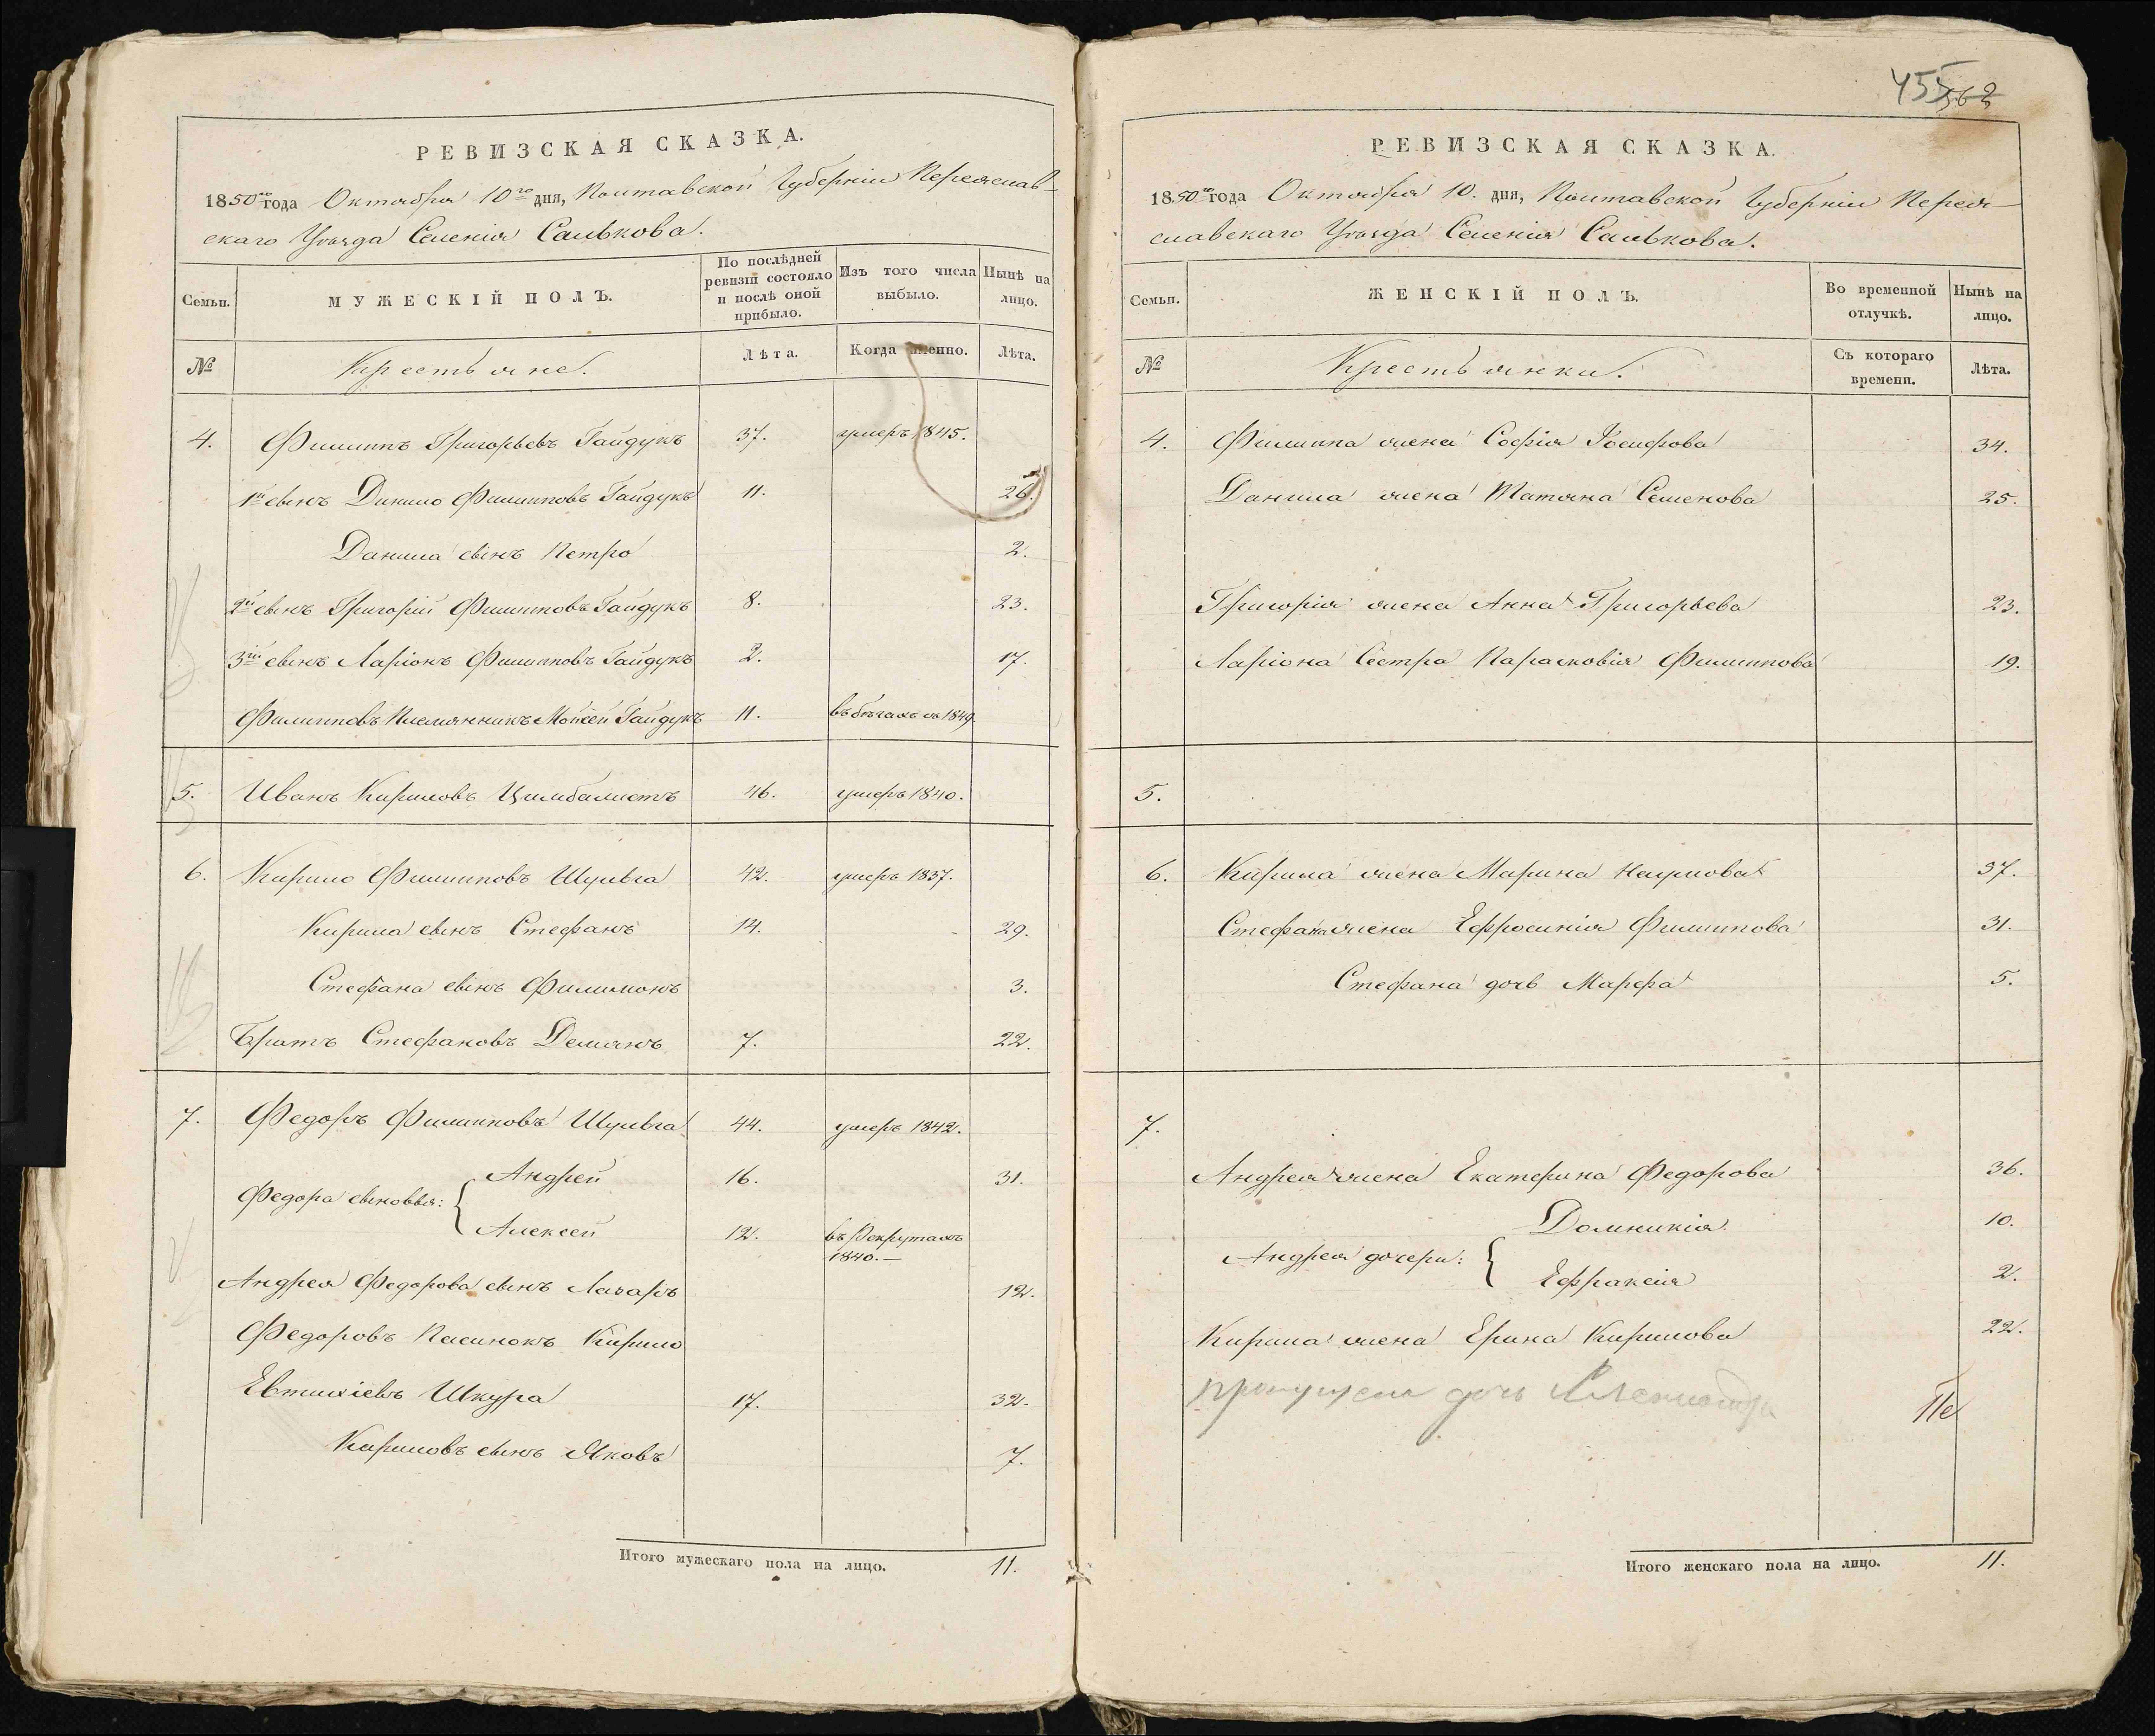 РЕВИЗСКАЯ СКАЗКА.
1850го года Октября 10го дня, Полтавской Губерніи Переяслав-
скаго Уѣзда Селенія Салькова.
Семьи.
МУЖЕСКІЙ ПОЛЪ.
По послѣдней ревизіи состояло и послѣ оной прибыло.
Изъ того числа выбыло.
Нынѣ на лицо.
№
Крестьяне.
Лѣта.
Когда именно.
Лѣта.
4. Филиппъ Григорьевъ Гайдукъ 37. умеръ 1845.
1й сынъ Данило Филипповъ Гайдукъ 11. 26.
Данила сынъ Петро 2.
2й сынъ Григорій Филипповъ Гайдукъ 8. 23.
3ій сынъ Ларіонъ Филипповъ Гайдукъ 2. 17.
Филипповъ Племянникъ Мойсей Гайдукъ 11. въ бѣгахъ съ 1849.
5. Иванъ Кириловъ Цимбалистъ 46. умеръ 1840.
6. Кирило Филипповъ Шульга 42. умеръ 1837.
Кирила сынъ Стефанъ 14. 29.
Стефана сынъ Филимонъ 3.
Братъ Стефановъ Демянъ 7. 22.
7. Федоръ Филипповъ Шульга 44. умеръ 1842.
Федора сыновья: { Андрей 16. 31.
Алексей 12. въ Рекрутахъ
1840.—
Андрея Федорова сынъ Лазарь 12.
Федоровъ Пасинокъ Кирило
Евтихіевъ Шкура 17. 32.
Кириловъ сынъ Яковъ 7.
Итого мужескаго пола на лицо. 11.
455
562
РЕВИЗСКАЯ СКАЗКА.
1850го года Октября 10. дня, Полтавской Губерніи Перея-
славскаго Уѣзда Селенія Салькова.
Семьи.
ЖЕНСКІЙ ПОЛЪ.
Во временной отлучкѣ.
Нынѣ на лицо.
№
Крестьянки.
Съ котораго времени.
Лѣта.
4. Филиппа жена Софія Іосифова 34.
Данила жена Татяна Семенова 25.
Григорія жена Анна Григорьева 23.
Ларіона Сестра Парасковія Филиппова 19.
5.
6. Кирила жена Марина Наумова 37.
Стефана жена Ефросинія Филиппова 31.
Стефана дочь Марфа 5.
7.
Андрея жена Екатерина Федорова 36.
Домникія 10.
Андрея дочери: {
Ефраксія 2.
Кирила жена Ерина Кирилова 22.
пропущена дочь Александра
Итого женскаго пола на лицо. 11.